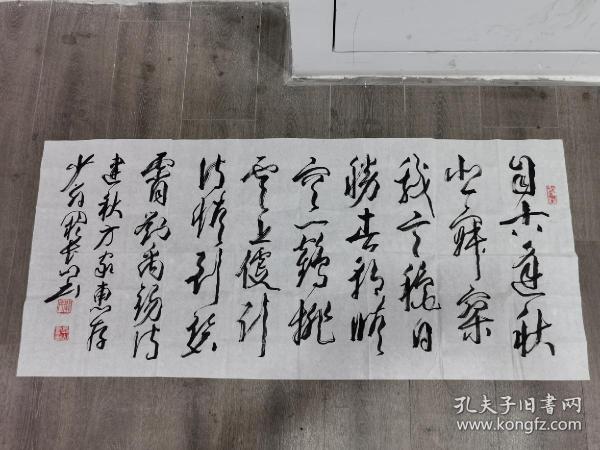 自古逢秋
悲寂寥
我言秋日
胜春朝晴
空一鹤排
云上便引
诗情到碧
霄刘禹锡诗
建秋方家惠存
孔夫子旧书网
www.kongfz.com